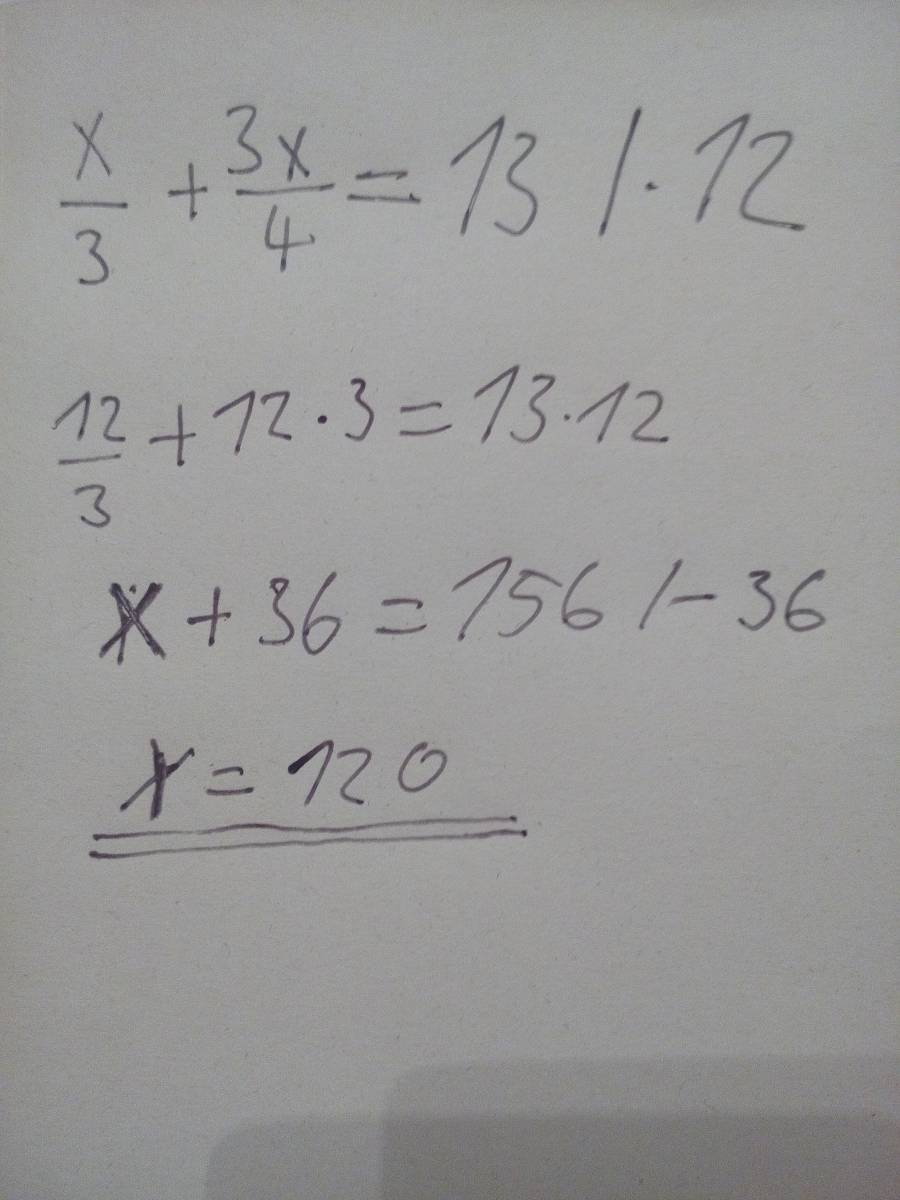 x/3 + 3x/4 = 13 /· 12
12/3 + 12 · 3 = 13 · 12
x + 36 = 156 /- 36
x = 120